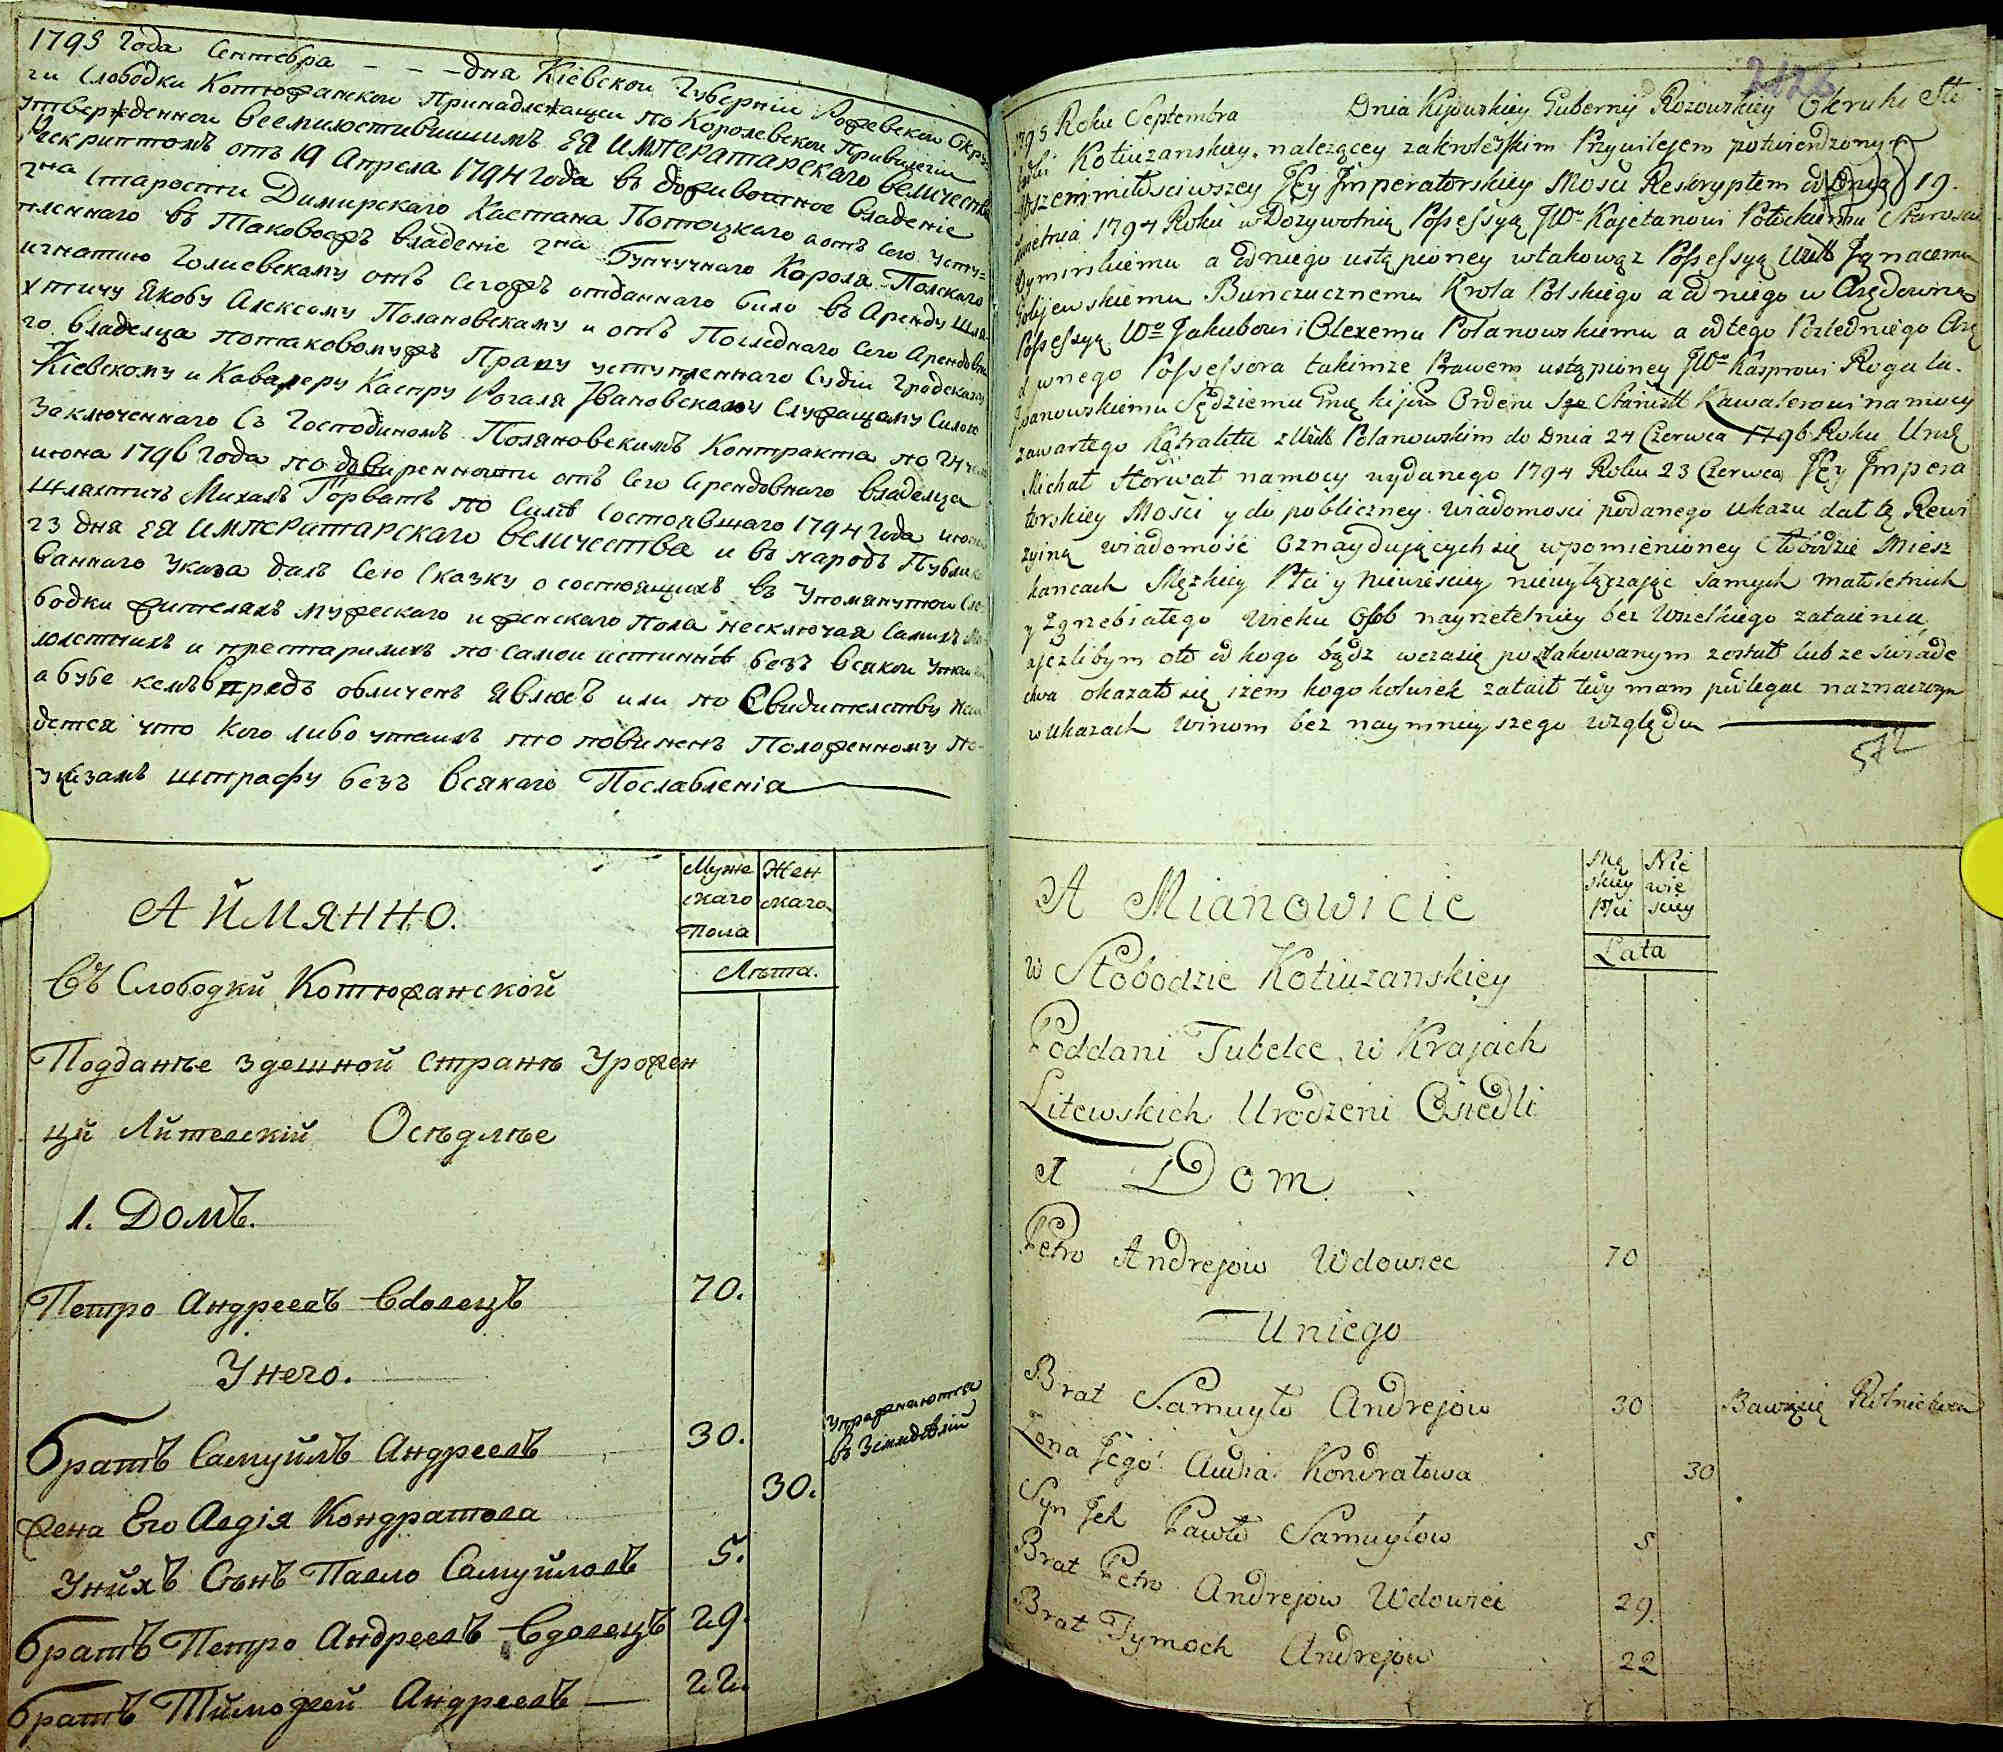 1795 Года Сентебра - - - дня Кіевской Губерніи Рожевской Окру
ги Слободки Котюжанской Принадлежащей по Королевской Привилегіи
утвержденной всемилостивѣйшимъ ЕЯ ИМПЕРАТАРСКАГО Величества
Рескриптомъ отъ 19 Апреля 1794 Года въ доживотное владеніе
г на Старости Димирскаго Каетана Потоцкаго а отъ сего усту=
пленнаго въ таковоежъ владеніе г на Бунчучнаго Короля Полскаго
игнатию Голиевскаму отъ сегожъ отданнаго было въ Аренду шля
хтичу Якобу Алексому Полановскаму и отъ Последнаго сего Арендовна
го владелца потаковомужъ Праву уступленнаго Судіи Гродскаго
Кіевскому и Кавалеру Каспру Рогаля Ивановскаму Служащому Силою
Заключеннаго Съ Господиномъ Поляновскимъ Контракта по 24 число
июна 1796 Года по доверенности отъ сего Арендовнаго владелца
Шляхтичъ Михалъ Горватъ по Силѣ Состоявшаго 1794 Года июна
23 дня ЕЯ ИМПЕРИТАРСКАГО Величества и въ народъ Публико
ваннаго Указа далъ сею Сказку о состоящихъ въ упомянутой Сло
бодки жителяхъ мужескаго и женскаго пола неключая самихъ Ма
лолетнихъ и престарилихъ по самой истиннѣ безъ всякой утайки
а буде кемъ впредь обличенъ явлюсъ или по Свидителству най
детса что кого либо утаилъ то повиненъ Положенному по
указамъ штрафу безъ всякаго Послабленія
А ЙМЯННО.
Муже Жен
скаго скаго
Пола
Лѣта.
Въ Слободкй Котюжанской
Подданъе здешной странъ Урожен
цй Лйтвескій Осѣдлъе
1. Домъ.
Петро Андреевъ Вдовецъ 70.
У него.
братъ Самуйлъ Андреевъ 30. упражняютса
въ Земледѣлій
жена Его Авдія Кондратова 30.
Унйхъ Сынъ Павло Самуйловъ 5.
братъ Петро Андреевъ Вдовецъ 29.
братъ Тймофей Андреевъ 22.
1795 Roku Septembra Dnia Kijowskiey Gubernij Rozowskiey Okruhi Sło
bodki Kotiużanskiey należącey zakrolewskim Przywilejem potwierdzonym
Wszemmiłosciwszey Jey Imperatorskiey Mosci Reskryptem od dnia 19.
Kwietnia 1794 Roku w Dozywotnią Possessyą JWo Kajetanowi Potockiemu Staroscie
Dymirskiemu a odniego ustąpioney wtakowąz Possessyą Ignacemu
Golijewskiemu Bunczucznemu Krola Polskiego a od niego w Arędowną
Possessyą Wo Jakubowi i Olexemu Polanowskiemu a odtego Posledniego Arę
downego Possessora takimże Prawem ustąpioney JWo Kasprowi Rogala
Iwanowskiemu Sędziemu Grod. kijow Orderu Sgo Stanisł Kawalerowi na mocy
zawartego Kątraktu z Polanowskim do Dnia 24 Czerwca 1796 Roku Urod
Michał Horwat namocy wydanego 1794 Roku 23 Czerwca Jey Impera
torskiey Mości y do publiczney wiadomosci podanego ukazu dał tę Rewi
zyiną wiadomość Oznaydujących się wpomienioney Słobodzie Miesz
kancach Męzkiey Płci y Niewiesciey niewyłączając samych małoletnich
y Zgrzebiałego wieku Osob nayrzetelniey bez wszelkiego zatajenia
ajezlibym oto od kogo bądz wczasie poszlakowanym został lub ze swiade
ctwa okazało się iżem kogo kolwiek zataił tedy mam podlegac naznaczonym
w ukazach winom bez naymnieyszego względu
572
A Mianowicie
Mę Nie
skiey wie
Płci sciey
Lata
w Słobodzie Kotiuzanskiey
Poddani Tutelce w Krajach
Litewskich Urodzeni Osiedli
1 Dom
Petro Andrejow Wdowiec 70
U niego
Brat Samuyło Andrejow 30 Bawią się Rolnictwem
Zona Jego Awdia Kondratowa 30
Syn Ich Pawło Samuyłow 5
Brat Petro Andrejow Wdowiec 29.
Brat Tymoch Andrejow 22